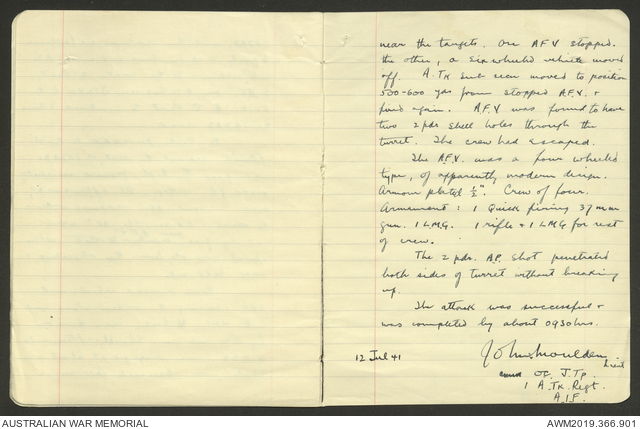 near the targets. One AFV stopped.
the other, a six wheeled vehicle moved
off. A.Tk sub seen moved to position
500-600 yds from stopped A.F.V. +
fired again. A.F.V was found to have
two 2 pdr shell holes through the
turret. The crew had escaped.
The A.F.V. was a four wheeled
type, of apparently modern design.
Armour plated ½". Crew of four.
Armament: 1 Quick firing 37 mm
gun. 1 LMG. 1 rifle + 1 LMG for rest
of crew.
The 2 pdr. A.P. shot penetrated
both sides of turret without breaking
up.
The attack was successful +
was completed by about 0930 hrs.
12 Jul 41
Lieut
OC. J. Tp.
1 A. Tk. Regt.
A.I.F.
AUSTRALIAN WAR MEMORIAL
AWM2019.366.901